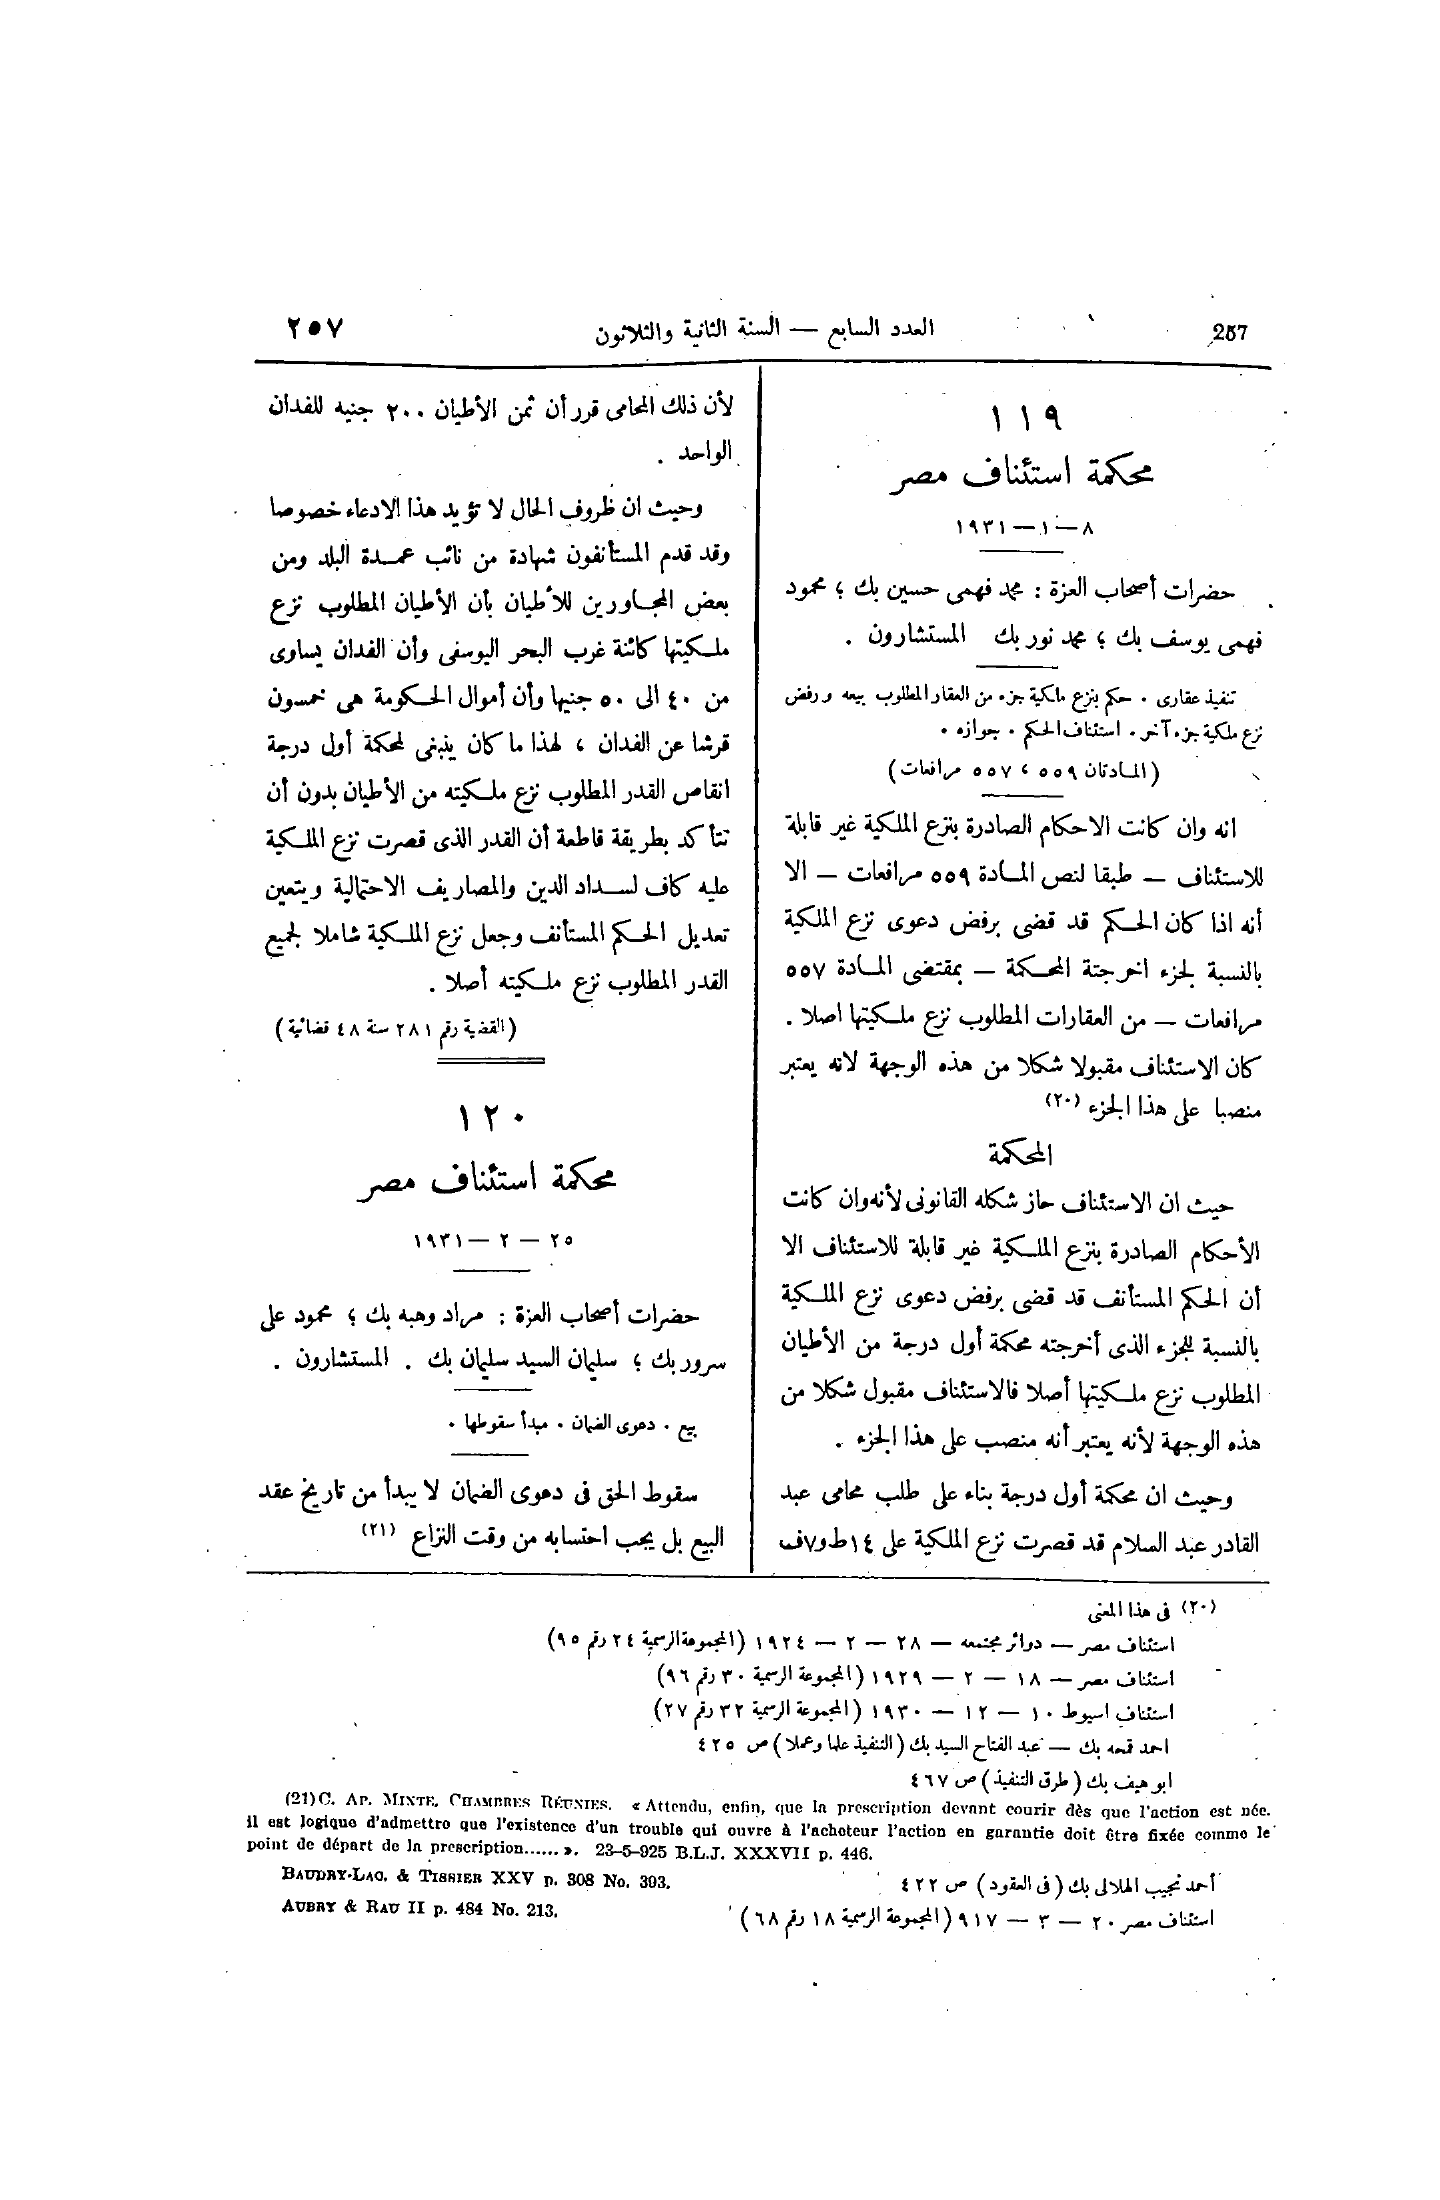 257
العدد السابع — السنة الثانية والثلاثون
٢٥٧
١١٩
محكمة استئناف مصر
٨ — ١ — ١٩٣١
حضرات أصحاب العزة : محمد فهمى حسين بك ؛ محمود
فهمى يوسف بك ؛ محمد نور بك المستشارون .
تنفيذ عقارى . حكم بنزع ملكية جزء من العقار المطلوب بيعه ورفض
نزع ملكية جزء آخر . استئناف الحكم . جوازه .
(المادتان ٥٥٩ ، ٥٥٧ مرافعات)
انه وان كانت الاحكام الصادرة بنزع الملكية غير قابلة
للاستئناف — طبقا لنص المادة ٥٥٩ مرافعات — الا
أنه اذا كان الحكم قد قضى برفض دعوى نزع الملكية
بالنسبة لجزء اخرجتة المحكمة — بمقتضى المادة ٥٥٧
مرافعات — من العقارات المطلوب نزع ملكيتها اصلا .
كان الاستئناف مقبولا شكلا من هذه الوجهة لانه يعتبر
منصبا على هذا الجزء (٢٠)
المحكمة
حيث ان الاستئناف حاز شكله القانونى لأنه وان كانت
الأحكام الصادرة بنزع الملكية غير قابلة للاستئناف الا
أن الحكم المستأنف قد قضى برفض دعوى نزع الملكية
بالنسبة للجزء الذى أخرجته محكمة أول درجة من الأطيان
المطلوب نزع ملكيتها أصلا فالاستئناف مقبول شكلا من
هذه الوجهة لأنه يعتبر أنه منصب على هذا الجزء .
وحيث ان محكمة أول درجة بناء على طلب محامى عبد
القادر عبد السلام قد قصرت نزع الملكية على ١٤ط و٧ف
لأن ذلك المحامى قرر أن ثمن الأطيان ٢٠٠ جنيه للفدان
الواحد .
وحيث ان ظروف الحال لا تؤيد هذا الادعاء خصوصا
وقد قدم المستأنفون شهادة من نائب عمدة البلد ومن
بعض المجاورين للأطيان بأن الأطيان المطلوب نزع
ملكيتها كائنة غرب البحر اليوسفى وأن الفدان يساوى
من ٤٠ الى ٥٠ جنيها وأن أموال الحكومة هى خمسون
قرشا عن الفدان ، لهذا ما كان ينبغى لمحكمة أول درجة
انقاص القدر المطلوب نزع ملكيته من الأطيان بدون أن
تتأكد بطريقة قاطعة أن القدر الذى قصرت نزع الملكية
عليه كاف لسداد الدين والمصاريف الاحتمالية ويتعين
تعديل الحكم المستأنف وجعل نزع الملكية شاملا لجميع
القدر المطلوب نزع ملكيته أصلا .
(القضية رقم ٢٨١ سنة ٤٨ قضائية)
١٢٠
محكمة استئناف مصر
٢٥ — ٢ — ١٩٣١
حضرات أصحاب العزة : مراد وهبه بك ؛ محمود على
سرور بك ؛ سليمان السيد سليمان بك . المستشارون .
بيع . دعوى الضمان . مبدأ سقوطها .
سقوط الحق فى دعوى الضمان لا يبدأ من تاريخ عقد
البيع بل يجب احتسابه من وقت النزاع (٢١)
(٢٠) فى هذا المعنى
استئناف مصر — دوائر مجتمعه — ٢٨ — ٢ — ١٩٢٤ (المجموعة الرسمية ٢٤ رقم ٩٥)
استئناف مصر — ١٨ — ٢ — ١٩٢٩ (المجموعة الرسمية ٣٠ رقم ٩٦)
استئناف اسيوط ١٠ — ١٢ — ١٩٣٠ (المجموعة الرسمية ٣٢ رقم ٢٧)
احمد قمحه بك — عبد الفتاح السيد بك (التنفيذ علما وعملا) ص ٤٢٥
ابو هيف بك (طرق التنفيذ) ص ٤٦٧
(21) C. AP. MIXTE. CHAMBRES RÉUNIES. « Attendu, enfin, que la prescription devant courir dès que l'action est née.
il est logique d'admettre que l'existence d'un trouble qui ouvre à l'acheteur l'action en garantie doit être fixée comme le
point de départ de la prescription...... ». 23-5-925 B.L.J. XXXVII p. 446.
BAUDRY-LAC. & TISSIER XXV p. 308 No. 393.
أحمد نجيب الهلالى بك (فى العقود) ص ٤٢٢
AUBRY & RAU II p. 484 No. 213.
استئناف مصر ٢٠ — ٣ — ٩١٧ (المجموعة الرسمية ١٨ رقم ٦٨)